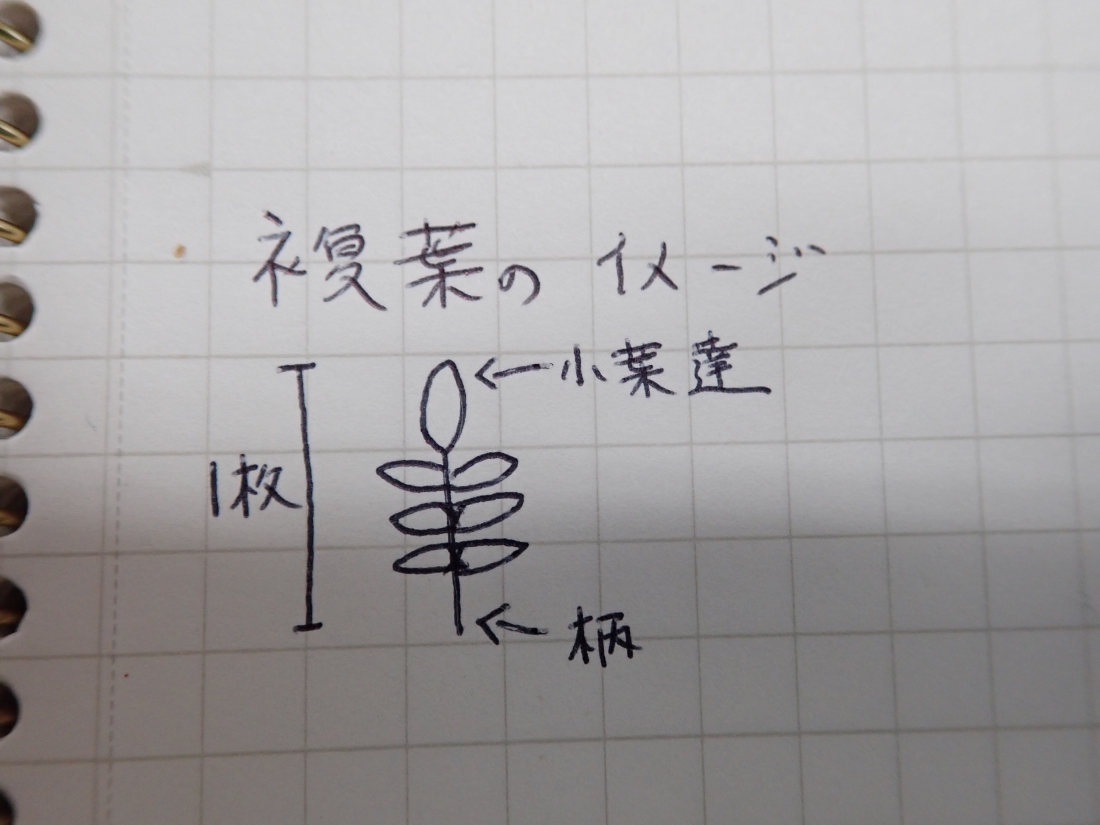 複葉の イメージ
小葉達
1枚
柄